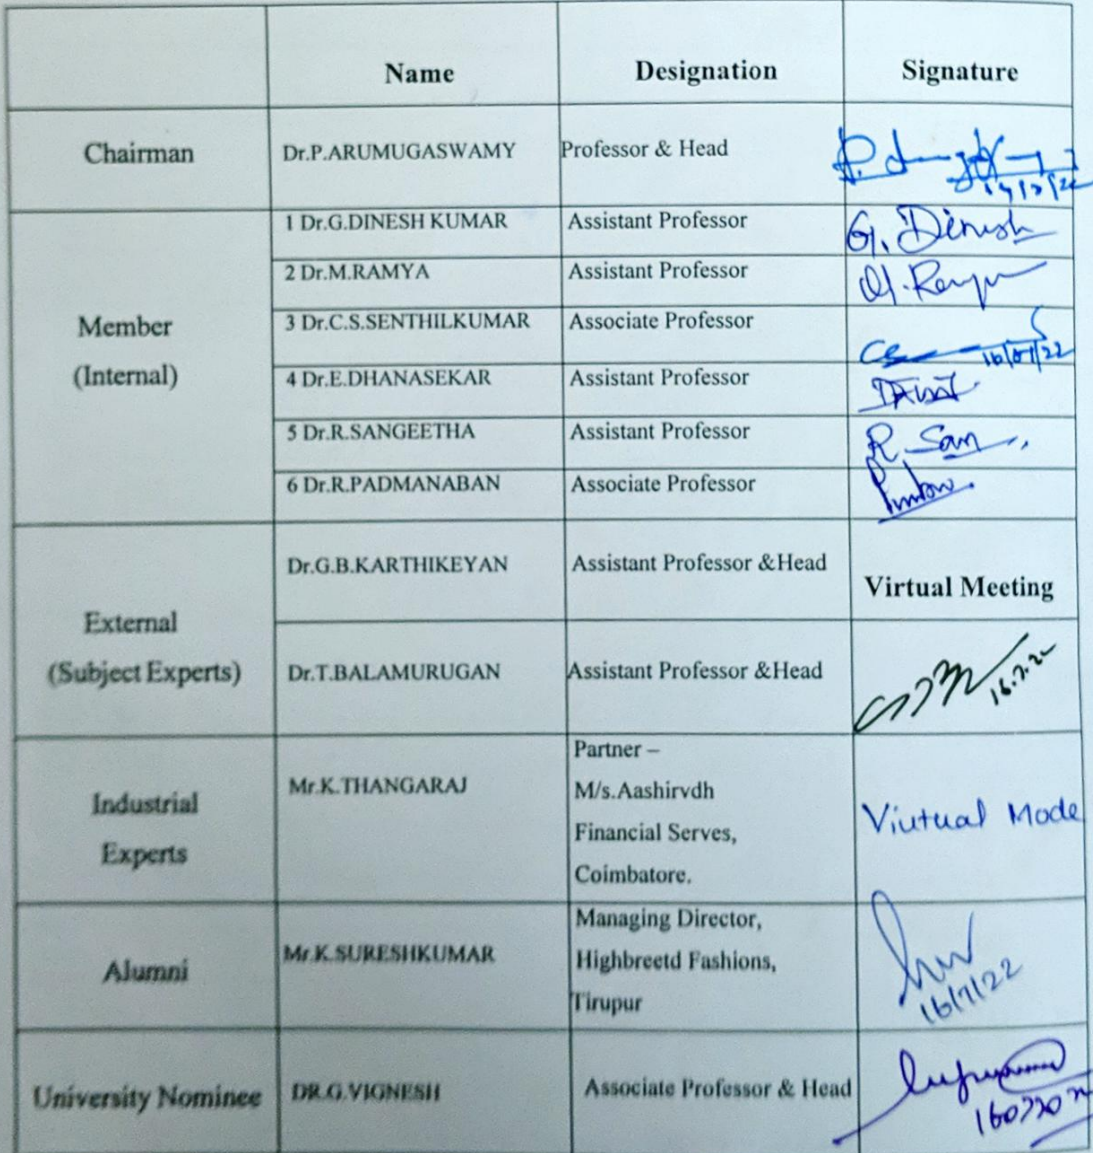 Name Designation Signature
Chairman Dr.P.ARUMUGASWAMY Professor & Head
Member
(Internal)
1 Dr.G.DINESH KUMAR Assistant Professor G. Dinesh
2 Dr.M.RAMYA Assistant Professor
3 Dr.C.S.SENTHILKUMAR Associate Professor 16/07/22
4 Dr.E.DHANASEKAR Assistant Professor
5 Dr.R.SANGEETHA Assistant Professor R. San
6 Dr.R.PADMANABAN Associate Professor
External
(Subject Experts)
Dr.G.B.KARTHIKEYAN Assistant Professor &Head Virtual Meeting
Dr.T.BALAMURUGAN Assistant Professor &Head 16.7.22
Industrial
Experts
Mr.K.THANGARAJ
Partner –
M/s.Aashirvdh
Financial Serves,
Coimbatore.
Viutual Mode
Alumni
Mr.K.SURESHKUMAR
Managing Director,
Highbreetd Fashions,
Tirupur
16/7/22
University Nominee DR.G.VIGNESH Associate Professor & Head